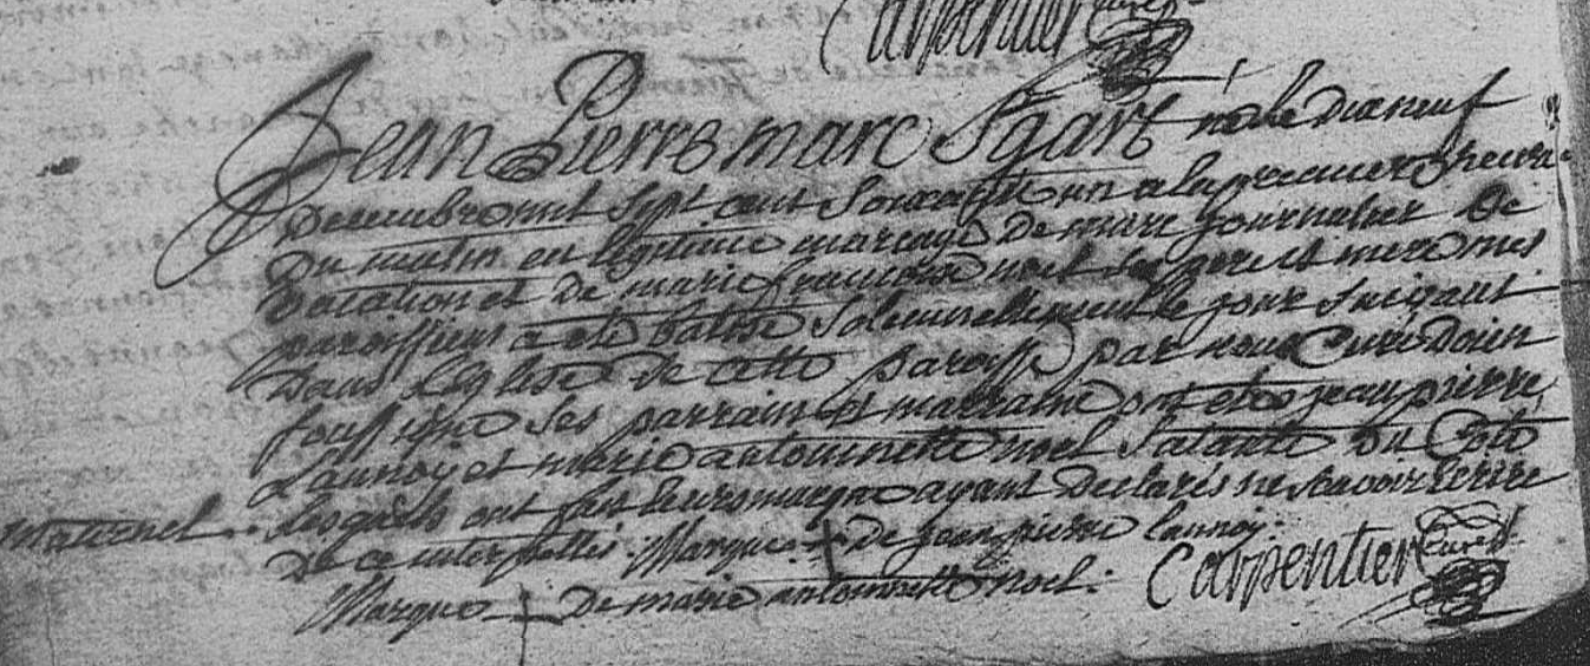 Carpentier Curé
Jean Pierre marc Sgart né le dix neuf
Decembre mil sept cent soixante un a la premiere heure
Du matin en legitime mariage De marc journalier De
vocation et De marie francoise noel ses pere et mere mes
paroissiens a eté batisé solemnellement le jour suivant
Dans l'eglise de cette paroisse par nous Curé Doien
soussigné ses parrain et marraine ont etes jean pierre
Lannoy et marie antoinette noel sa tante du Coté
maternel. lesquels ont fait leurs marque ayant Declarés ne scavoir Ecrire
De ce interpellés. Marque + De jean pierre lannoy.
Marque + De marie antoinette noel. Carpentier Curé